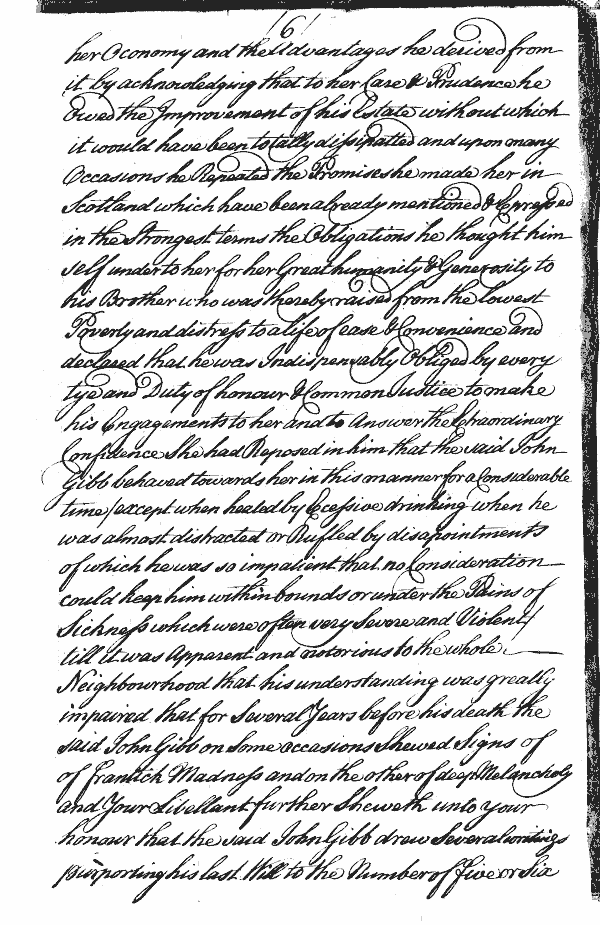 /6/
her Oconomy and the Advantages he derived from
it by acknowledging that to her Care & Prudence he
Owed the Improvement of his Estate without which
it would have been totally dissipatted and upon many
Occasions he Repeated the Promises he made her in
Scotland which have been already mentioned & Expressed
in the Strongest terms the Obligations he thought him
self under to her for her Great humanity & Generosity to
his Brother who was thereby raised from the lowest
Poverty and distress to a life of ease & Convenience and
declared that he was Indispensably Obliged by every
tye and Duty of honour & Common Justice to make
his Engagements to her and to Answer the Extraordinary
Confidence She had Reposed in him that the said John
Gibb behaved towards her in this manner for a Considerable
time / except when heated by Excessive drinking when he
was almost distracted or Rufled by disapointments
of which he was so impatient that no Consideration
could keep him within bounds or under the Pains of
Sickness which were often very Severe and Violent /
till it was Apparent and notorious to the whole
Neighbourhood that his understanding was greatly
impaired that for Several Years before his death the
said John Gibb on Some occasions Shewed Signs of
of frantick Madness and on the other of deep Melancholy
and Your Libellant further Sheweth unto your
honour that the said John Gibb drew Several writings
purporting his last Will to the Number of five or Six